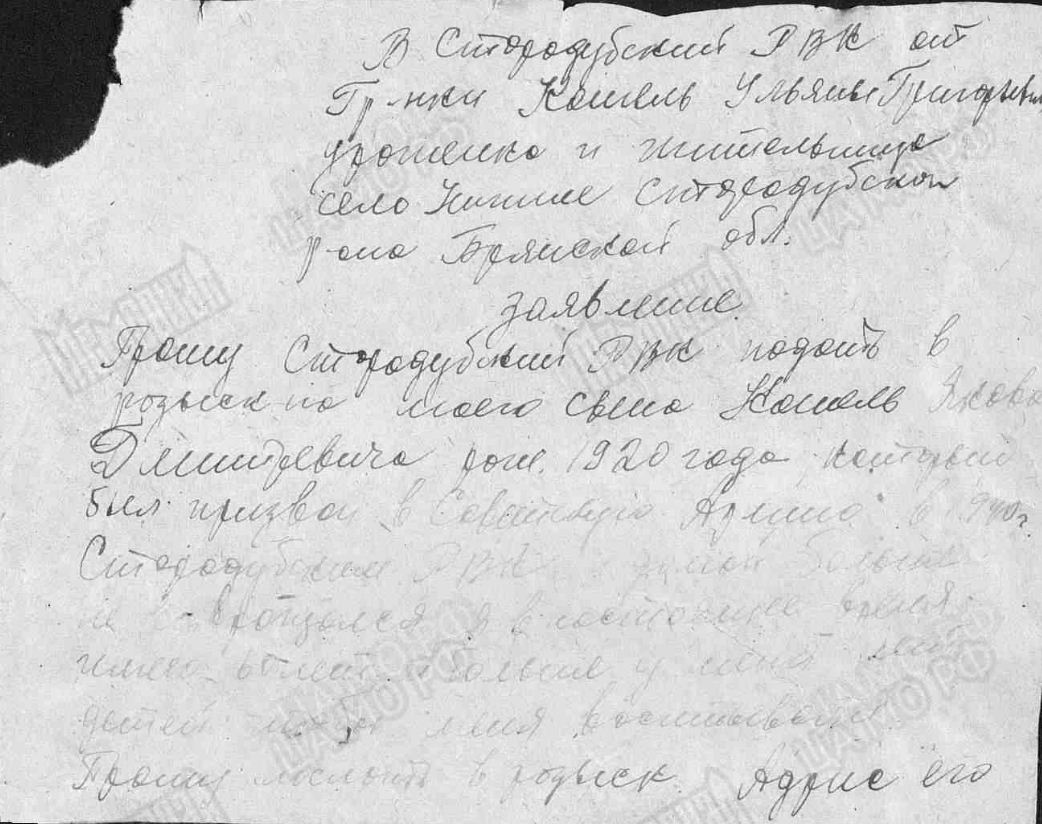 В Стародубский РВК от
Гр-нки Кошель Ульяны Григорьевны
уроженка и жительница
село Нижнее Стародубской
р-она Брянской обл.
заявление.
Прошу Стародубский РВК подать в
розыск на моего сына Кошель Якова
Дмитревича рож. 1920 года который
был призван в Советскую Армию в 1940 г.
Стародубским РВК и домой больше
не возвращался я в настоящее время
имею лет и больше у меня нет
детей меня воспитывать
Прошу послать в розыск. Адрис его